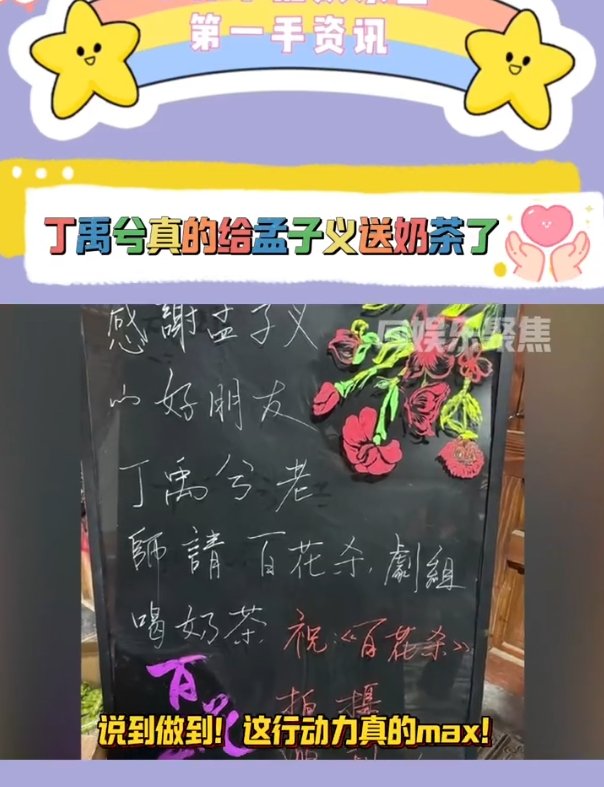 第一手资讯
丁禹兮真的给孟子义送奶茶了
娱乐聚焦
感謝孟子义
好朋友
丁禹兮老
師請百花杀劇組
喝奶茶
祝:《百花杀》
拍攝
百花
说到做到!这行动力真的max!